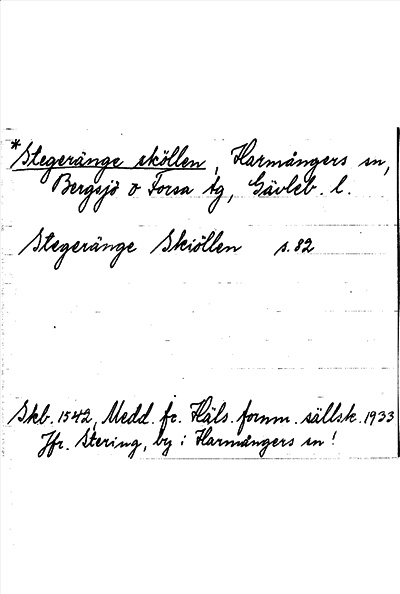 *Stegeränge sköllen, Harmångers sn,
Bergsjö o Forsa tg, Gävleb. l.
Stegeränge Skiöllen s. 82
Skb. 1542, Medd. fr. Häls. fornm. sällsk. 1933
Jfr. Stering, by i Harmångers sn!